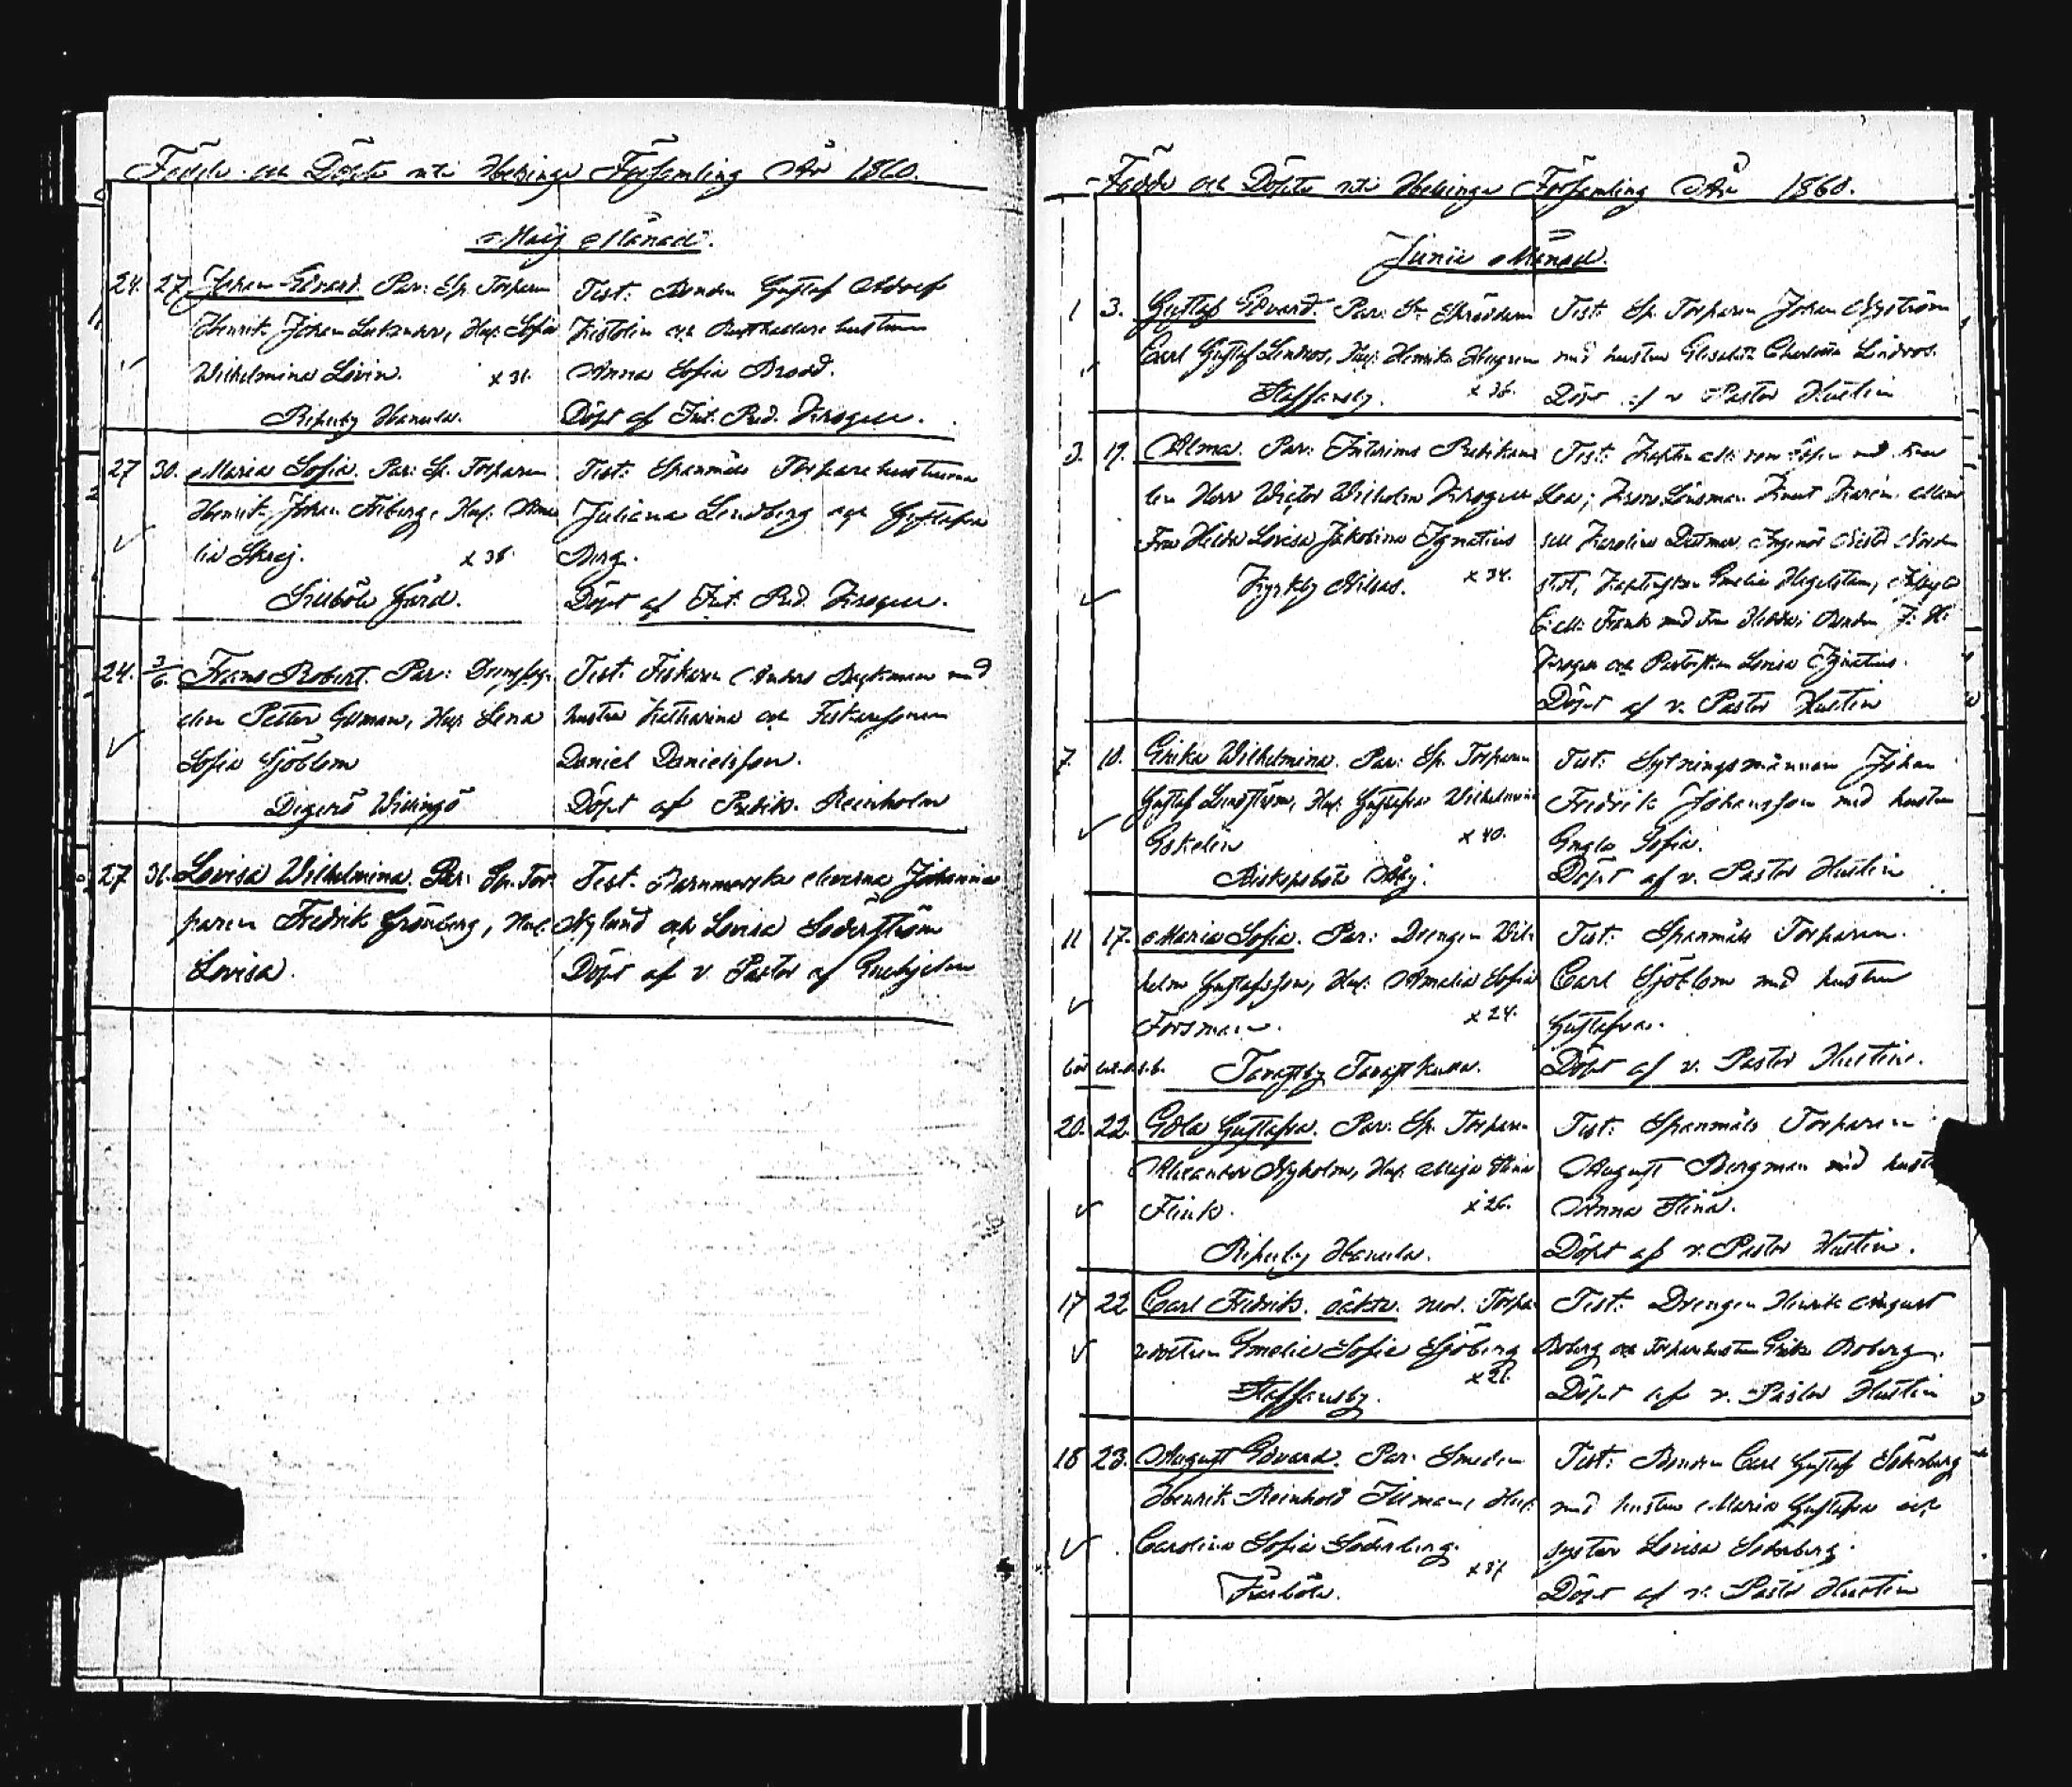 Födde och Döpte uti Helsinge Församling År 1860.
Maij Månad.
24. 27 Johan Edvard. Par: Sp. Torparen
Henrik Johan Lekander, Hu: Sofia
Wilhelmina Levin. x 31.
Riperby Hanula.
Test: Bonden Gustaf Adolf
och Rusthållare hustrun
Anna Sofia Brodd.
Döpt af Int. Pred. Krogell.
27 30. Maria Sofia. Par: Sp. Torparen
Henrik Johan Friberg, Hu: Ama
lia Skog. x 36
Gård.
Test: Spanmåls Torpare hustrurna
Juliana Lindberg och Gustafva
Berg.
Döpt af Int. Pred. Krogell.
24. 3/6. Frans Robert. Par: Drengfog-
den Petter Edman, Hu: Lena
Sofia Sjöblom
Degerö Willingö
Test: Fiskaren Anders Beckman med
hustru Katharina och Fiskaresonen
Daniel Danielsson.
Döpt af Predik. Reinholm
27 31. Lovisa Wilhelmina. Par: Sp. Tor-
paren Fredrik Grönberg, Hu:
Lovisa.
Test. Barnmorske eleverna Johanna
Nylund och Lovisa Söderström
Döpt af v. Pastor af Enehjelm
Födde och Döpte uti Helsinge Församling År 1860.
Junii Månad.
1 3. Gustaf Edvard. Par: Sn Skräddaren
Carl Gustaf Lindros, Hu: Henrika Hagren
Staffansby. x 36.
Test: Sp. Torparen Johan Nyström
med hustru Elisabeth Charlotta Lindros.
Döpt af v. Pastor Hustin
3. 17. Alma. Par: Interims Predikan
ten Herr Victor Wilhelm Krogell
Fru Hilda Lovisa Jakobina Ignatius
Kyrkby Nissas. x 34.
Test: med Fru
Lea; Krono Länsman Knut Mam
sell Karolina Dittmar, Ingeniör Norden
Emelie Hegelstam,
Frank med Fru Hedvig J. H.
Krogell och Lovisa Ignatius.
Döpt af v. Pastor Hustin
7. 10. Erika Wilhelmina. Par: Sp. Torparen
Gustaf Lundström, Hu: Gustafva Wilhelmina
Eskelin x 40.
Biskopsböle Åby.
Test: Sytningsmannen Johan
Fredrik Johansson med hustru
Engla Sofia.
Döpt af v. Pastor Hustin
11 17. Maria Sofia. Par: Drengen Wil-
helm Gustafsson, Hu: Amalia Sofia
Forsman. x 24.
Tavastby Tavastkulla.
Test: Spanmåls Torparen
Carl Sjöblom med hustru
Gustafva.
Döpt af v. Pastor Hustin.
20. 22. Edla Gustafva. Par: Sp. Torparen
Alexander Nyholm, Hu: Maja Stina
Flink. x 26.
Riperby Hanula.
Test: Spanmåls Torparen
August Bergman med hustru
Anna Stina.
Döpt af v. Pastor Hustin.
17 22 Carl Fredrik. oäkta. Mod. Torpa-
redottren Emelie Sofie Sjöberg
Staffansby. x 21.
Test: Drengen Henrik August
Boberg och torpare hustru Erika Boberg.
Döpt af v. Pastor Hustin
18 23. August Edvard. Par: Smeden
Henrik Reinhold Ilman, Hu:
Carolina Sofia Söderberg. x 37
Test: Bonden Carl Gustaf Söderberg
med hustru Maria Gustafva och
syster Lovisa Söderberg.
Döpt af v. Pastor Hustin